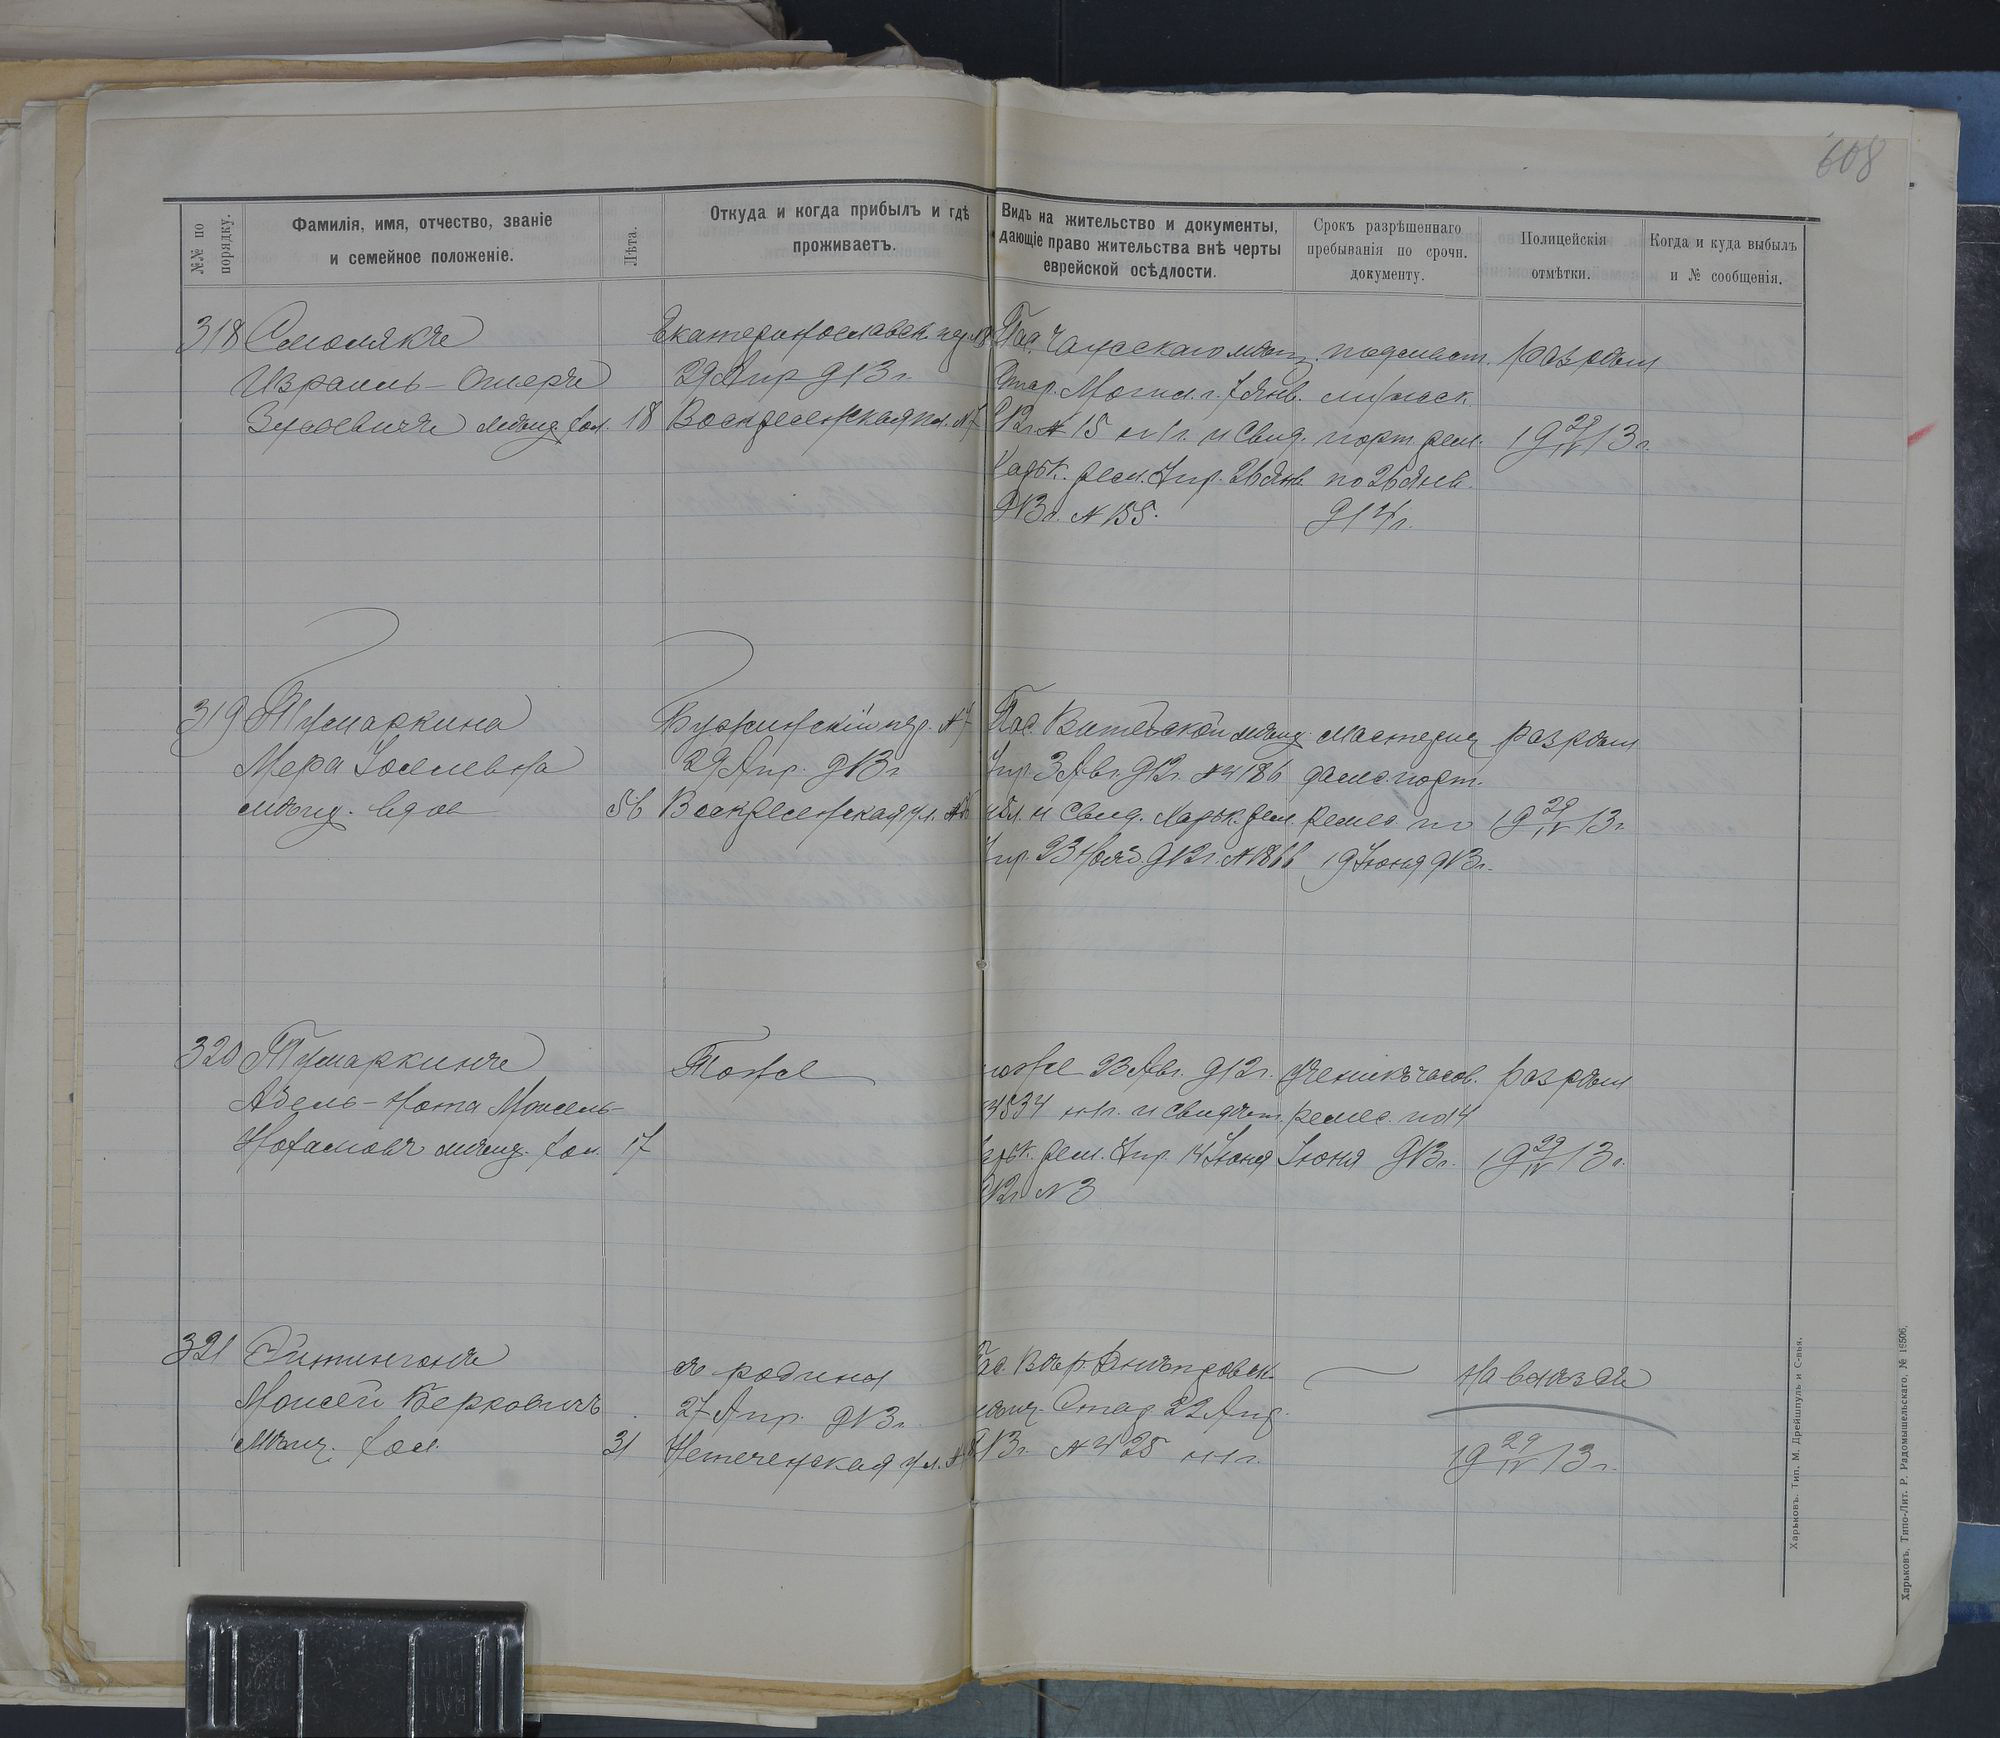 608
№№ по порядку.
Фамилія, имя, отчество, званіе
и семейное положеніе.
Лѣта.
Откуда и когда прибылъ и гдѣ
проживаетъ.
Видъ на жительство и документы,
дающіе право жительства внѣ черты
еврейской осѣдлости.
Срокъ разрѣшеннаго
пребыванія по срочн.
документу.
Полицейскія
отмѣтки.
Когда и куда выбылъ
и № сообщенія.
318
Смолякъ
Израиль-Омеръ
мѣщ. хол.
18
Екатеринославск.
29 Апр 913 г.
Воскресенская пл. № 7
Пас. Чаусскаго мѣщ.
Стар. Могил. г. 7 Янв.
№ 15 на 1 г. и Свид.
Харьк. рем. Упр. 26 Янв.
913 г. № 155.
подмаст.
порт. рем.
по 26 Янв.
914 г.
19 29/IV 13 г.
319
Тумаркина
Мера
мѣщ. вдов
56
пер. № 7
29 Апр. 913 г.
Воскресенская пл.
Пас. Витебской мѣщ.
Упр. 3 Авг. 912 г. № 4186
и Свид. Харьк. рем.
Упр. 23 Нояб. 912 г. № 1866
Мастериц
дамс. порт.
ремес по
19 Июня 913 г.
19 29/IV 13 г.
320
Тумаркинъ
Абель-Нота Мовшель-
Нохамовъ мѣщ. хол.
17
Тоже
тоже 23 Авг. 912 г.
4534 на 1 г. и свидѣт.
Харьк. рем. Упр. 14 Июня
912 г. № 3
Ученикъ часов.
ремес. по 14
Июня 913 г.
19 29/IV 13 г.
321
Эйтингонъ
Моисей Берковичъ
Мѣщ. хол.
31
съ родины
27 Апр. 913 г.
Нетеченская ул.
Пас. Верхнеднѣпровск.
мѣщ. Стар. 22 Апр.
913 г. № 425 на 1 г.
На выѣздъ
19 29/IV 13 г.
Харьковъ. Тип. М. Дрейшпуль и С-вья.
Харьковъ, Типо-Лит. Р. Радомышельскаго, № 19506.